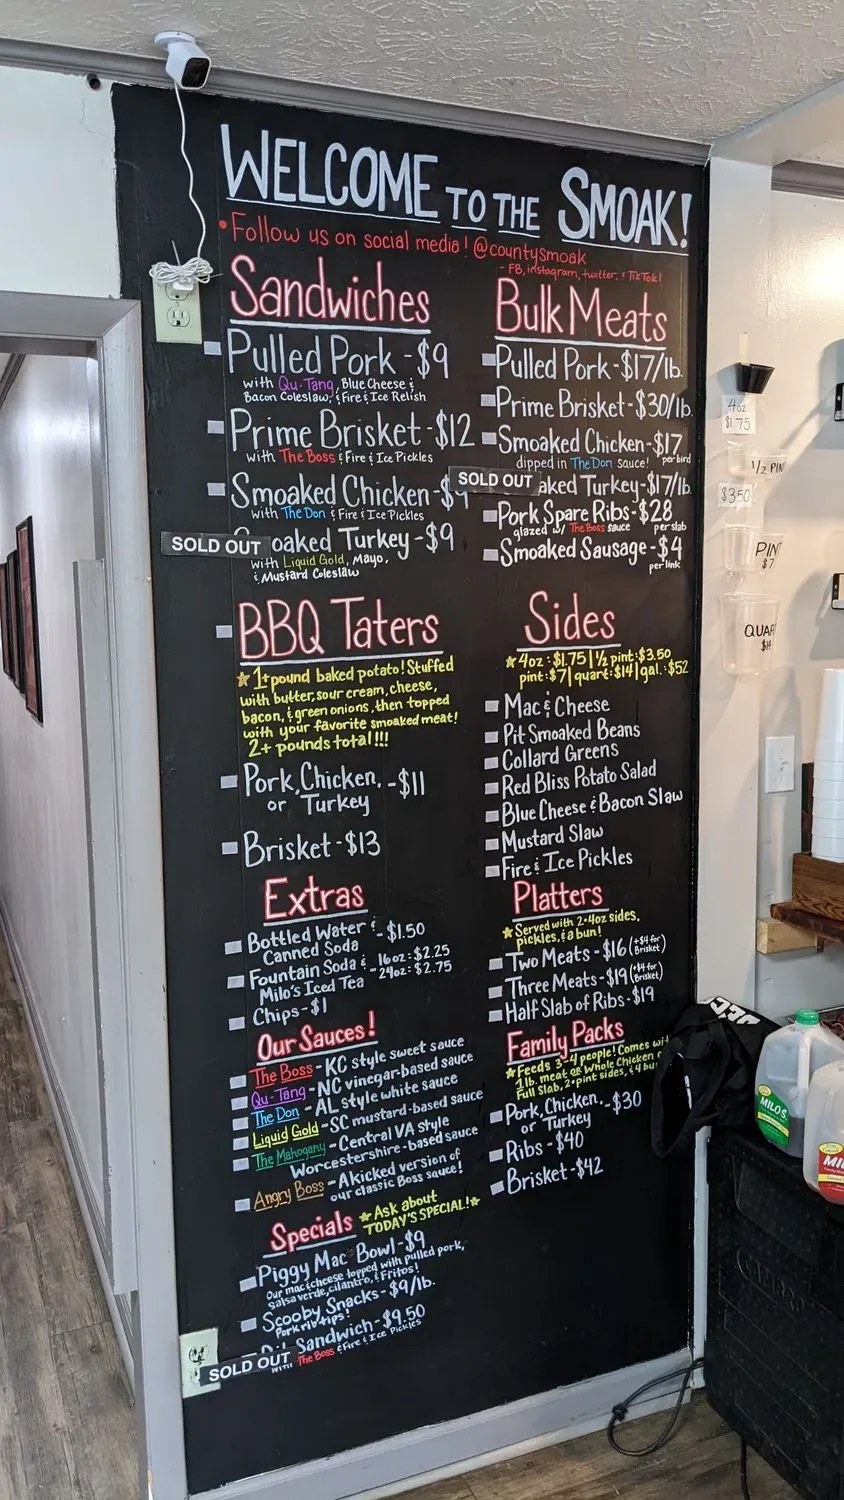 WELCOME TO THE SMOAK!
• Follow us on social media! @countysmoak
- FB, instagram, twitter, & TikTok!
Sandwiches
Pulled Pork - $9
with Qu-Tang, Blue Cheese &
Bacon Coleslaw, & Fire & Ice Relish
Prime Brisket - $12
with The Boss & Fire & Ice Pickles
Smoaked Chicken - $9
with The Don & Fire & Ice Pickles
SOLD OUT oaked Turkey - $9
with Liquid Gold, Mayo,
& Mustard Coleslaw
Bulk Meats
Pulled Pork - $17/lb.
Prime Brisket - $30/lb.
Smoaked Chicken - $17
per bird
dipped in The Don sauce!
SOLD OUT aked Turkey - $17/lb.
Pork Spare Ribs - $28
glazed w/ The Boss sauce per slab
Smoaked Sausage - $4
per link
BBQ Taters
1+ pound baked potato! Stuffed
with butter, sour cream, cheese,
bacon, & green onions, then topped
with your favorite smoaked meat!
2+ pounds total!!!
Pork, Chicken, - $11
or Turkey
Brisket - $13
Sides
4oz: $1.75 | 1/2 pint: $3.50
pint: $7 | quart: $14 | gal.: $52
Mac & Cheese
Pit Smoaked Beans
Collard Greens
Red Bliss Potato Salad
Blue Cheese & Bacon Slaw
Mustard Slaw
Fire & Ice Pickles
Extras
Bottled Water & - $1.50
Canned Soda
Fountain Soda & - 16oz: $2.25
Milo's Iced Tea 24oz: $2.75
Chips - $1
Platters
Served with 2-4oz sides,
pickles, & a bun!
Two Meats - $16 (+$4 for Brisket)
Three Meats - $19 (+$4 for Brisket)
Half Slab of Ribs - $19
Our Sauces!
The Boss - KC style sweet sauce
Qu-Tang - NC vinegar-based sauce
The Don - AL style white sauce
Liquid Gold - SC mustard-based sauce
The Mahogany - Central VA style
Worcestershire-based sauce
Angry Boss - A kicked version of
our classic Boss sauce!
Family Packs
Feeds 3-4 people! Comes wi
1lb. meat or Whole Chicken
Full Slab, 2-pint sides, & 4 bu
Pork, Chicken, - $30
or Turkey
Ribs - $40
Brisket - $42
Specials
Ask about
TODAY'S SPECIAL!
Piggy Mac Bowl - $9
Our mac & cheese topped with pulled pork,
salsa verde, cilantro, & Fritos!
Scooby Snacks - $9/lb.
Pork rib tips!
Sandwich - $9.50
SOLD OUT with The Boss & Fire & Ice Pickles
4oz
$1.75
1/2 PIN
$3.50
PINT
$7
QUAR
MILO'S